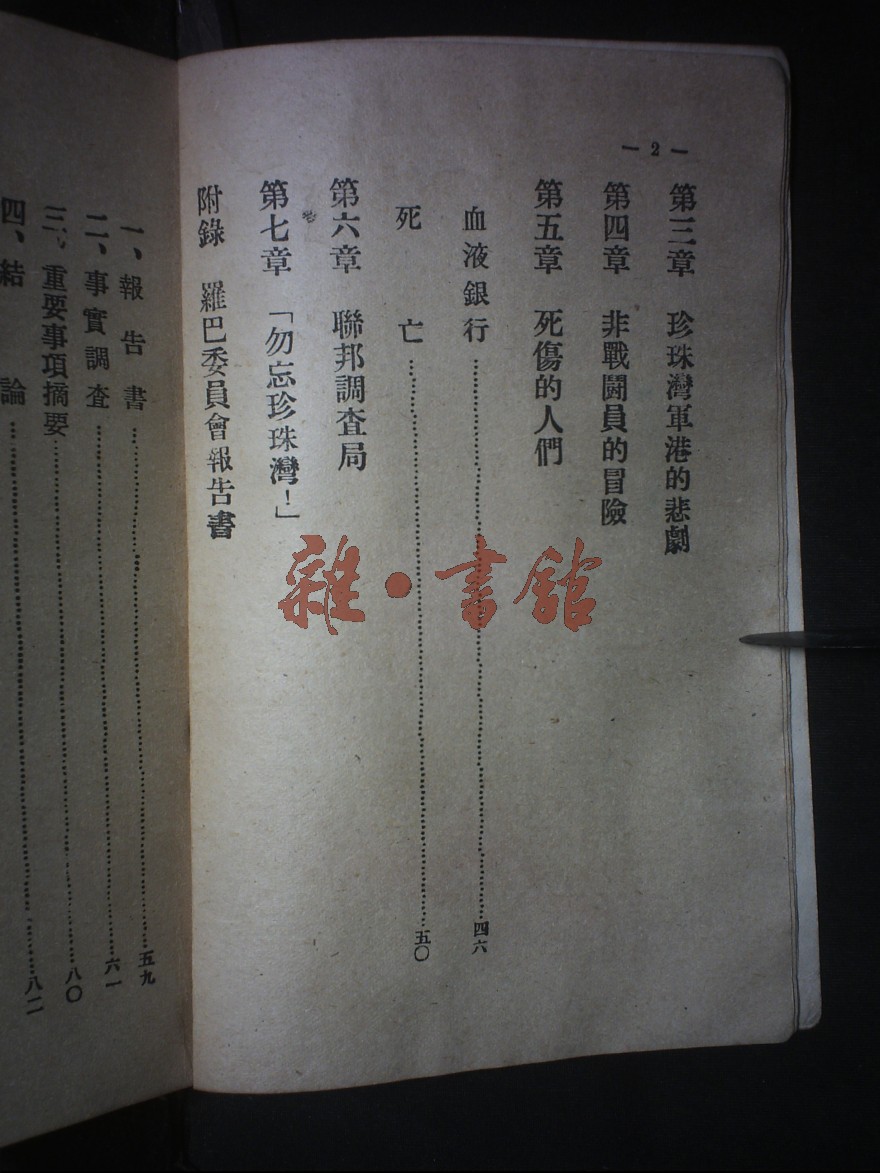 — 2 —
第三章 珍珠灣軍港的悲劇
第四章 非戰鬪員的冒險
第五章 死傷的人們
血液銀行……四六
死亡……五〇
第六章 聯邦調查局
第七章 「勿忘珍珠灣！」
附錄 羅巴委員會報告書
一、報告書……五九
二、事實調查……六一
三、重要事項摘要……八〇
四、結論……八二
雜·書館